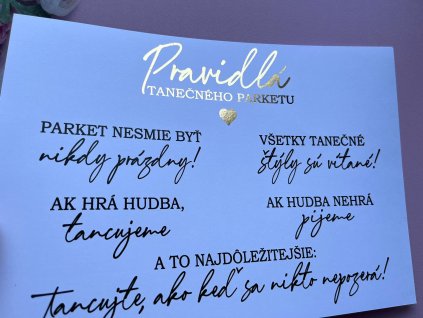 Pravidlá
TANEČNÉHO PARKETU
PARKET NESMIE BYŤ
nikdy prázdny!
VŠETKY TANEČNÉ
štýly sú vítané!
AK HRÁ HUDBA,
tancujeme
AK HUDBA NEHRÁ
pijeme
A TO NAJDÔLEŽITEJŠIE:
Tancujte, ako keď sa nikto nepozerá!